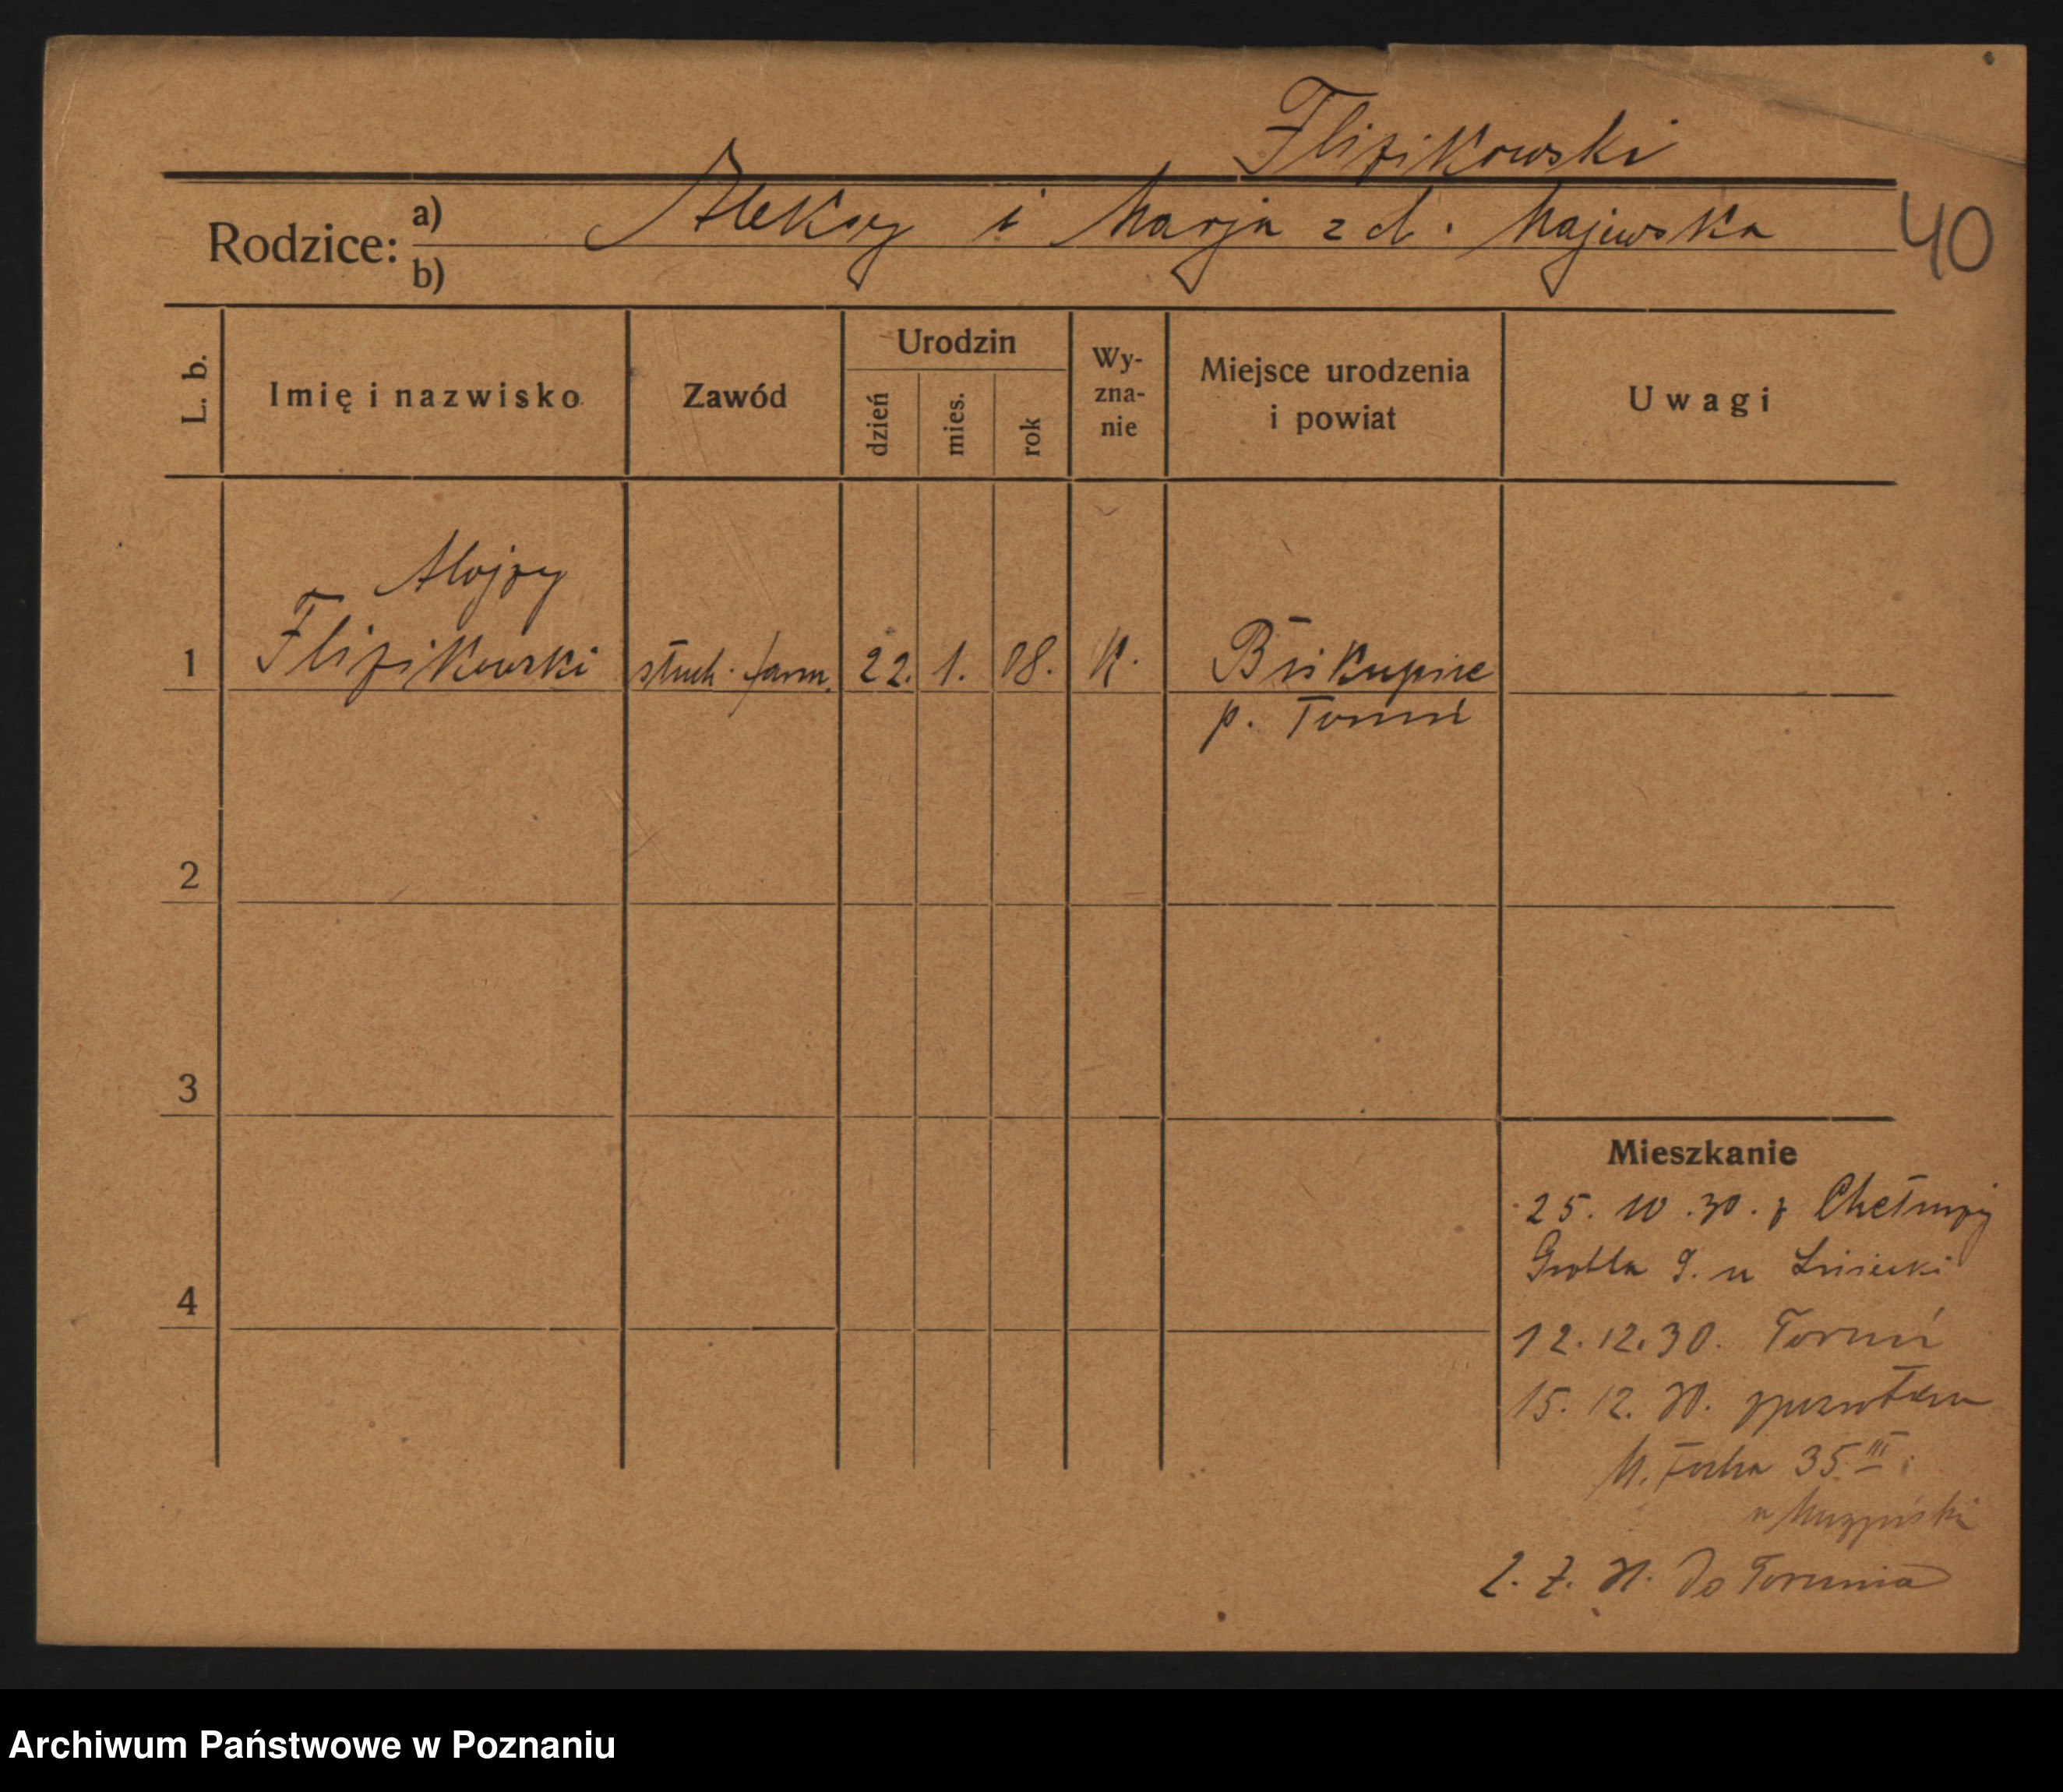 Flizikowski
Rodzice: a) Aleksy i Marja z d. Majewska
b)
40
L. b.
Imię i nazwisko
Zawód
Urodzin
dzień
mies.
rok
Wy-
zna-
nie
Miejsce urodzenia
i powiat
Uwagi
Alojzy
1 Flizikowski stud. farm. 22. 1. 08. K. Biskupice
p. Toruń
2
3
4
Mieszkanie
25. 10. 30. z Chełmży
Grobla 9. u
12.12.30. Toruń
15. 12. 30. zpowrotem
M. Focha 35 III
u
2. 7. 31. do Torunia
Archiwum Państwowe w Poznaniu